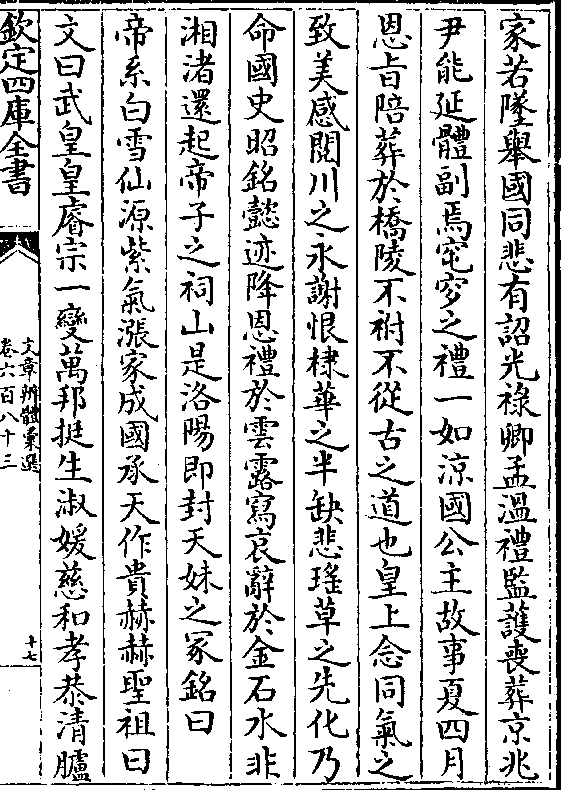 家若墜舉國同悲有詔光祿卿孟溫禮監護喪葬京兆
尹能延體副焉窀穸之禮一如涼國公主故事夏四月
恩旨陪葬於橋陵不祔不從古之道也皇上念同氣之
致美感閱川之永謝恨棣華之半缺悲瑤草之先化乃
命國史昭銘懿迹降恩禮於雲露寫哀辭於金石水非
湘渚還起帝子之祠山是洛陽即封天妹之冢銘曰
帝系白雪仙源紫氣漲家成國承天作貴赫赫聖祖曰
文曰武皇皇睿宗一變萬邦挺生淑媛慈和孝恭清臚
欽定四庫全書
文章辨體彙選
卷六百八十三
十七